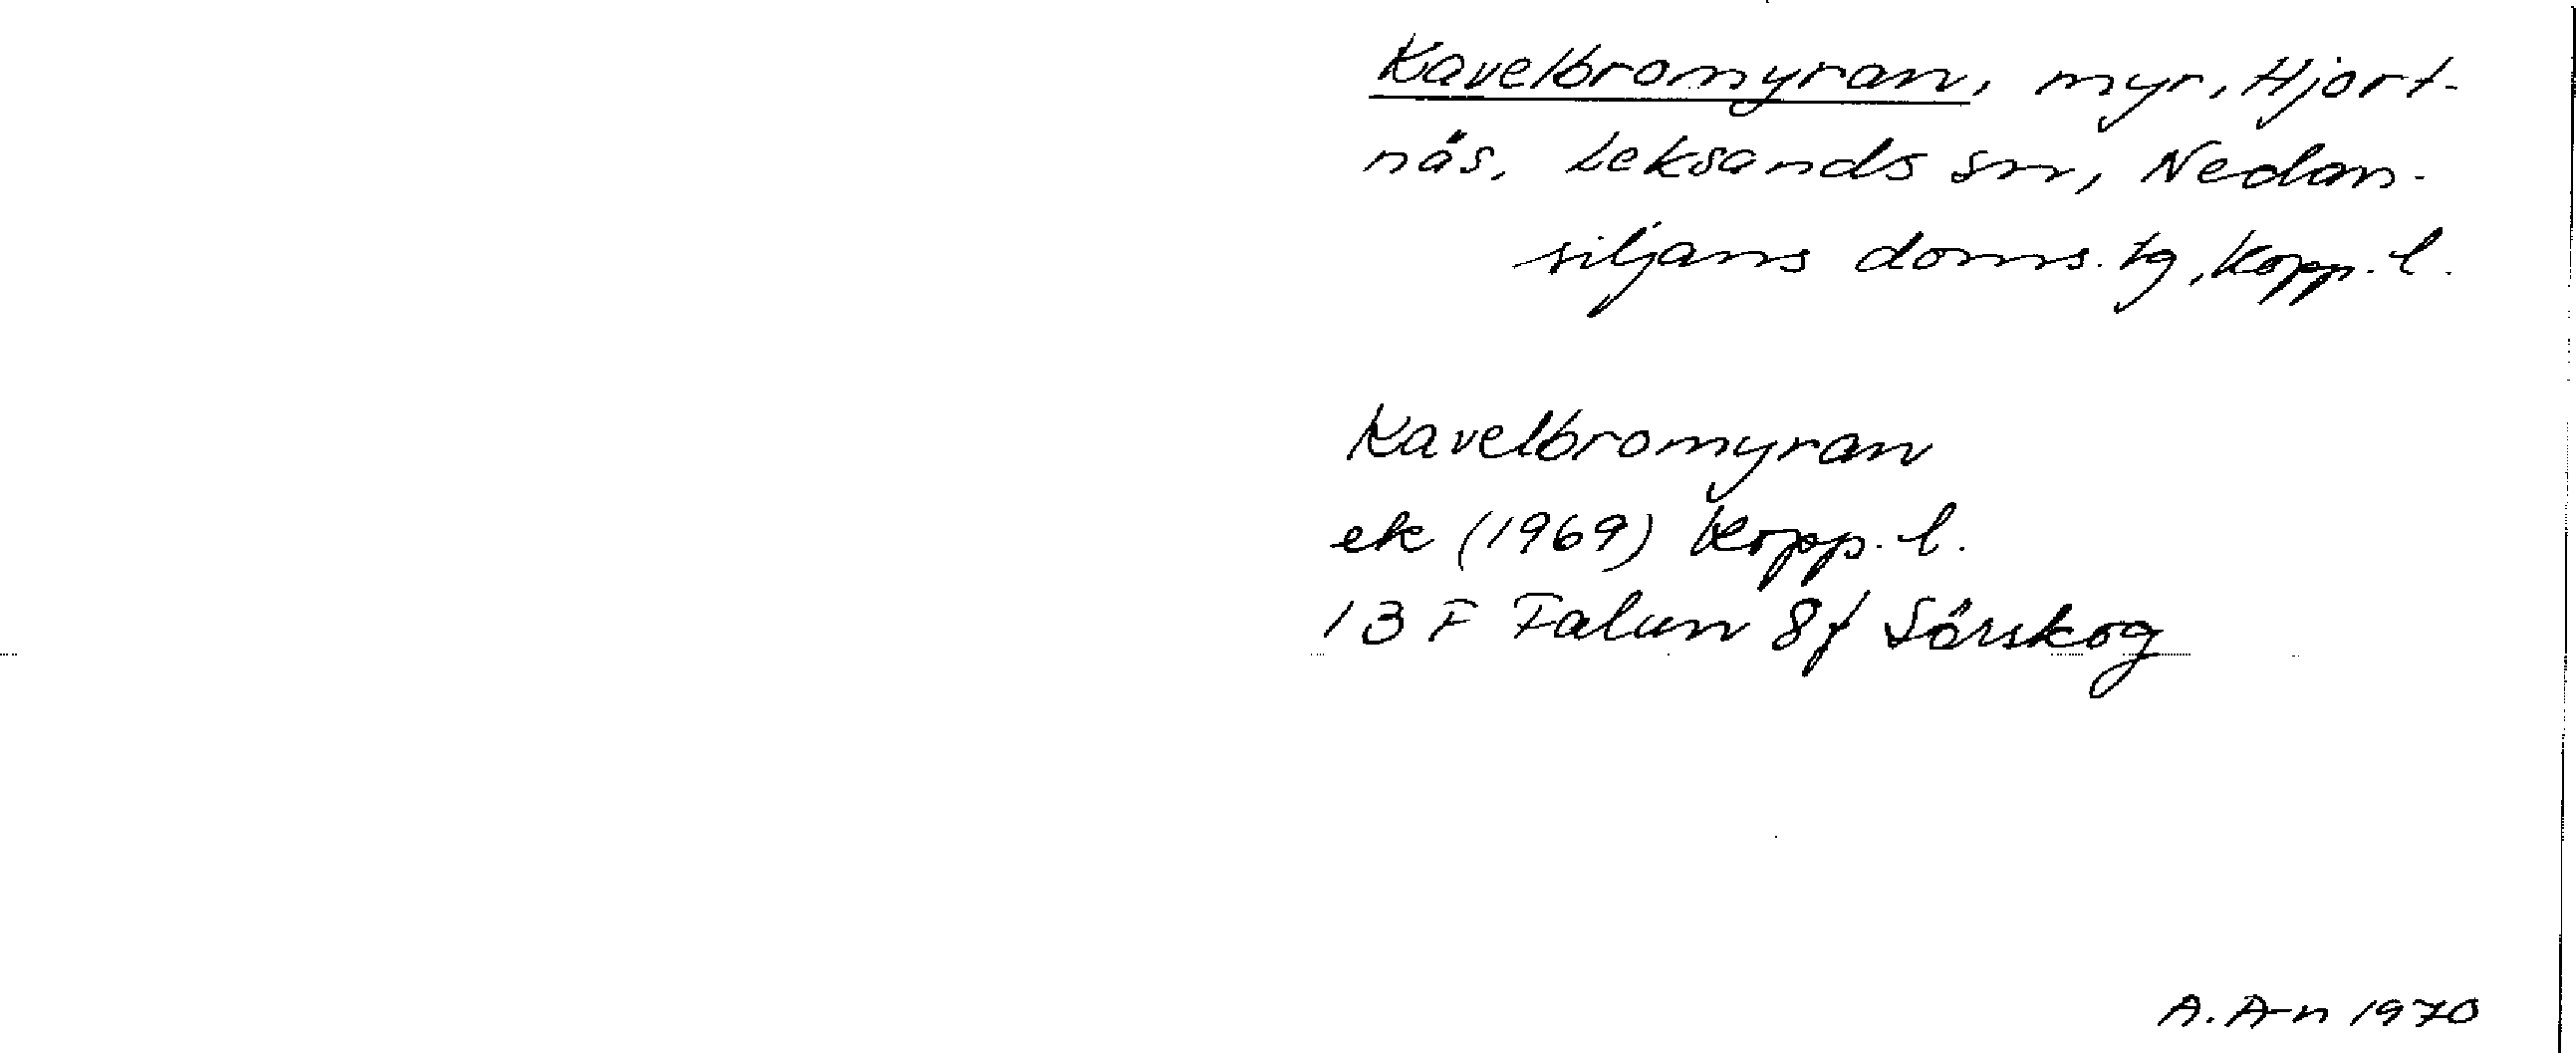 Kavelbromyran, myr, Hjort-
näs, Leksands sn, Nedan-
siljans doms. tg, Kopp. l.
Kavelbromyran
ek (1969) Kopp. l.
13 F Falun 8f Sörskog
A. A-n 1970